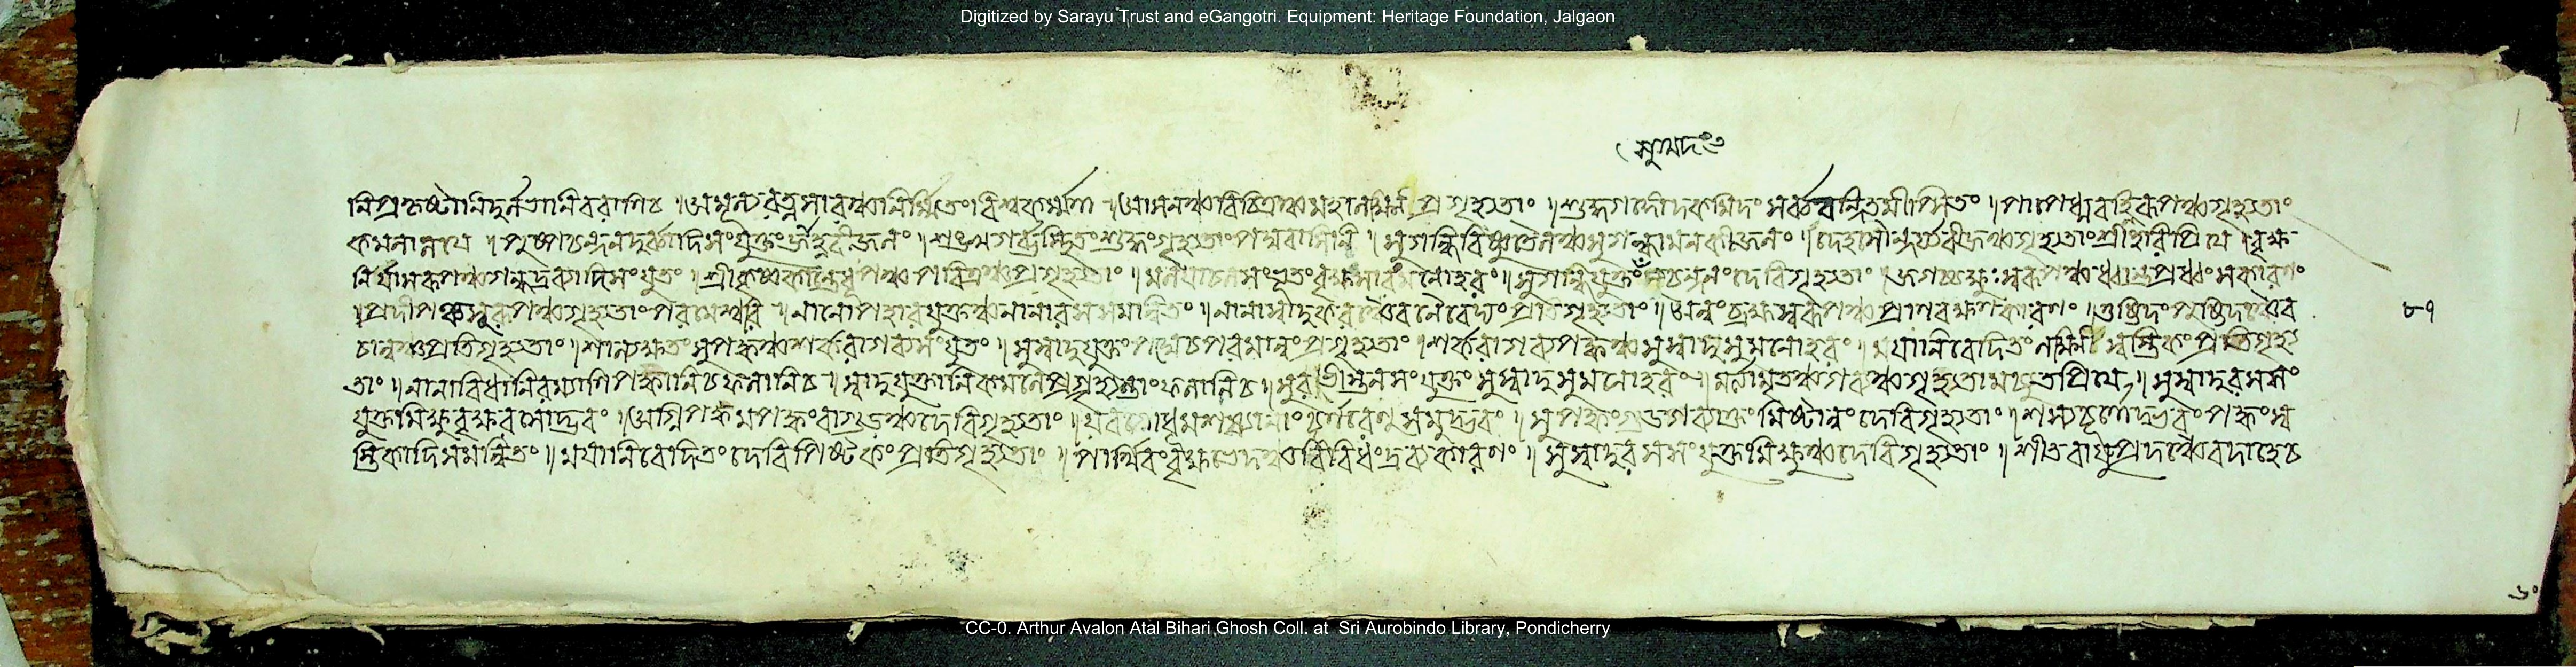 Digitized by Sarayu Trust and eGangotri. Equipment: Heritage Foundation, Jalgaon
নিপ্রকৃষ্টানিদুর্লভানিবরাণিচ ।অমূল্যরত্নসারঞ্চনির্ম্মিতংবিশ্বকর্ম্মণা ।আসনঞ্চবিচিত্রঞ্চমহালক্ষ্মি প্রগৃহ্যতাং ।শুদ্ধগঙ্গোদকমিদং সর্ব্ববন্দিতমীপ্সিতং ।পাপেধ্মবহ্নিরূপঞ্চগৃহ্যতাং
কমলালয়ে ।পুষ্পচন্দনদুর্ব্বাদিসংযুক্তংজাহ্নবীজলং ।শঙ্খগর্ভস্থিতংশুদ্ধংগৃহ্যতাংপদ্মবাসিনি ।সুগন্ধিবিষ্ণুতৈলঞ্চসুগন্ধামলকীজলং ।দেহসৌন্দর্য্যবীজঞ্চগৃহ্যতাংশ্রীহরিপ্রিয়ে ।বৃক্ষ
নির্যাসরূপঞ্চগন্ধদ্রব্যাদিসংযুতং ।শ্রীকৃষ্ণকান্তেধূপঞ্চপবিত্রঞ্চপ্রগৃহ্যতাং ।মলয়াচলসংভূতংবৃক্ষসারংমনোহরং ।সুগন্ধিযুক্তং চন্দনংদেবিগৃহ্যতাং ।জগচ্চক্ষুঃস্বরূপঞ্চধ্বান্তপ্রধ্বংসকারণং
।প্রদীপং গৃহ্যতাংপরমেশ্বরি ।নানোপহারযুক্তঞ্চনানারসসমন্বিতং ।নানাস্বাদুকরঞ্চৈবনৈবেদ্যংপ্রতিগৃহ্যতাং ।অন্নংব্রহ্মস্বরূপঞ্চপ্রাণরক্ষণকারণং ।তুষ্টিদংপুষ্টিদঞ্চৈব
চান্নঞ্চপ্রতিগৃহ্যতাং ।শাল্যক্ষতংসুপক্বঞ্চশর্করাগব্যসংযুতং ।সুস্বাদুযুক্তংপদ্মেচপরমান্নংপ্রগৃহ্যতাং ।শর্করাগব্যপক্বঞ্চসুস্বাদুসুমনোহরং ।ময়ানিবেদিতংলক্ষ্মি স্বস্তিকংপ্রতিগৃহ্য
তাং ।নানাবিধানিরম্যাণিপক্বানিচফলানিচ ।স্বাদুযুক্তানিকমলেপ্রগৃহ্যন্তাংফলানিচ ।সুরভীস্তনসংযুক্তংসুস্বাদুসুমনোহরং ।মর্ত্যামৃতঞ্চগব্যঞ্চগৃহ্যতামচ্যুতপ্রিয়ে ।সুস্বাদুরসসং
যুক্তমিক্ষুবৃক্ষরসোদ্ভবং ।অগ্নিপক্বমপক্বংবাগুড়ঞ্চদেবিগৃহ্যতাং ।যবগোধূমশস্যানাংচূর্ণরেণুসমুদ্ভবং ।সুপক্বংগুডগব্যাক্তংমিষ্টান্নংদেবিগৃহ্যতাং ।শস্যচূর্ণোদ্ভবংপক্বংস্ব
স্তিকাদিসমন্বিতং ।ময়ানিবেদিতংদেবিপিষ্টকংপ্রতিগৃহ্যতাং ।পার্থিবংবৃক্ষভেদঞ্চবিবিধংদ্রব্যকারণং ।সুস্বাদুরসসংযুক্তমিক্ষুঞ্চদেবিগৃহ্যতাং ।শীতবায়ুপ্রদঞ্চৈবদাহেচ
৮৭
৬০
CC-0. Arthur Avalon Atal Bihari Ghosh Coll. at Sri Aurobindo Library, Pondicherry